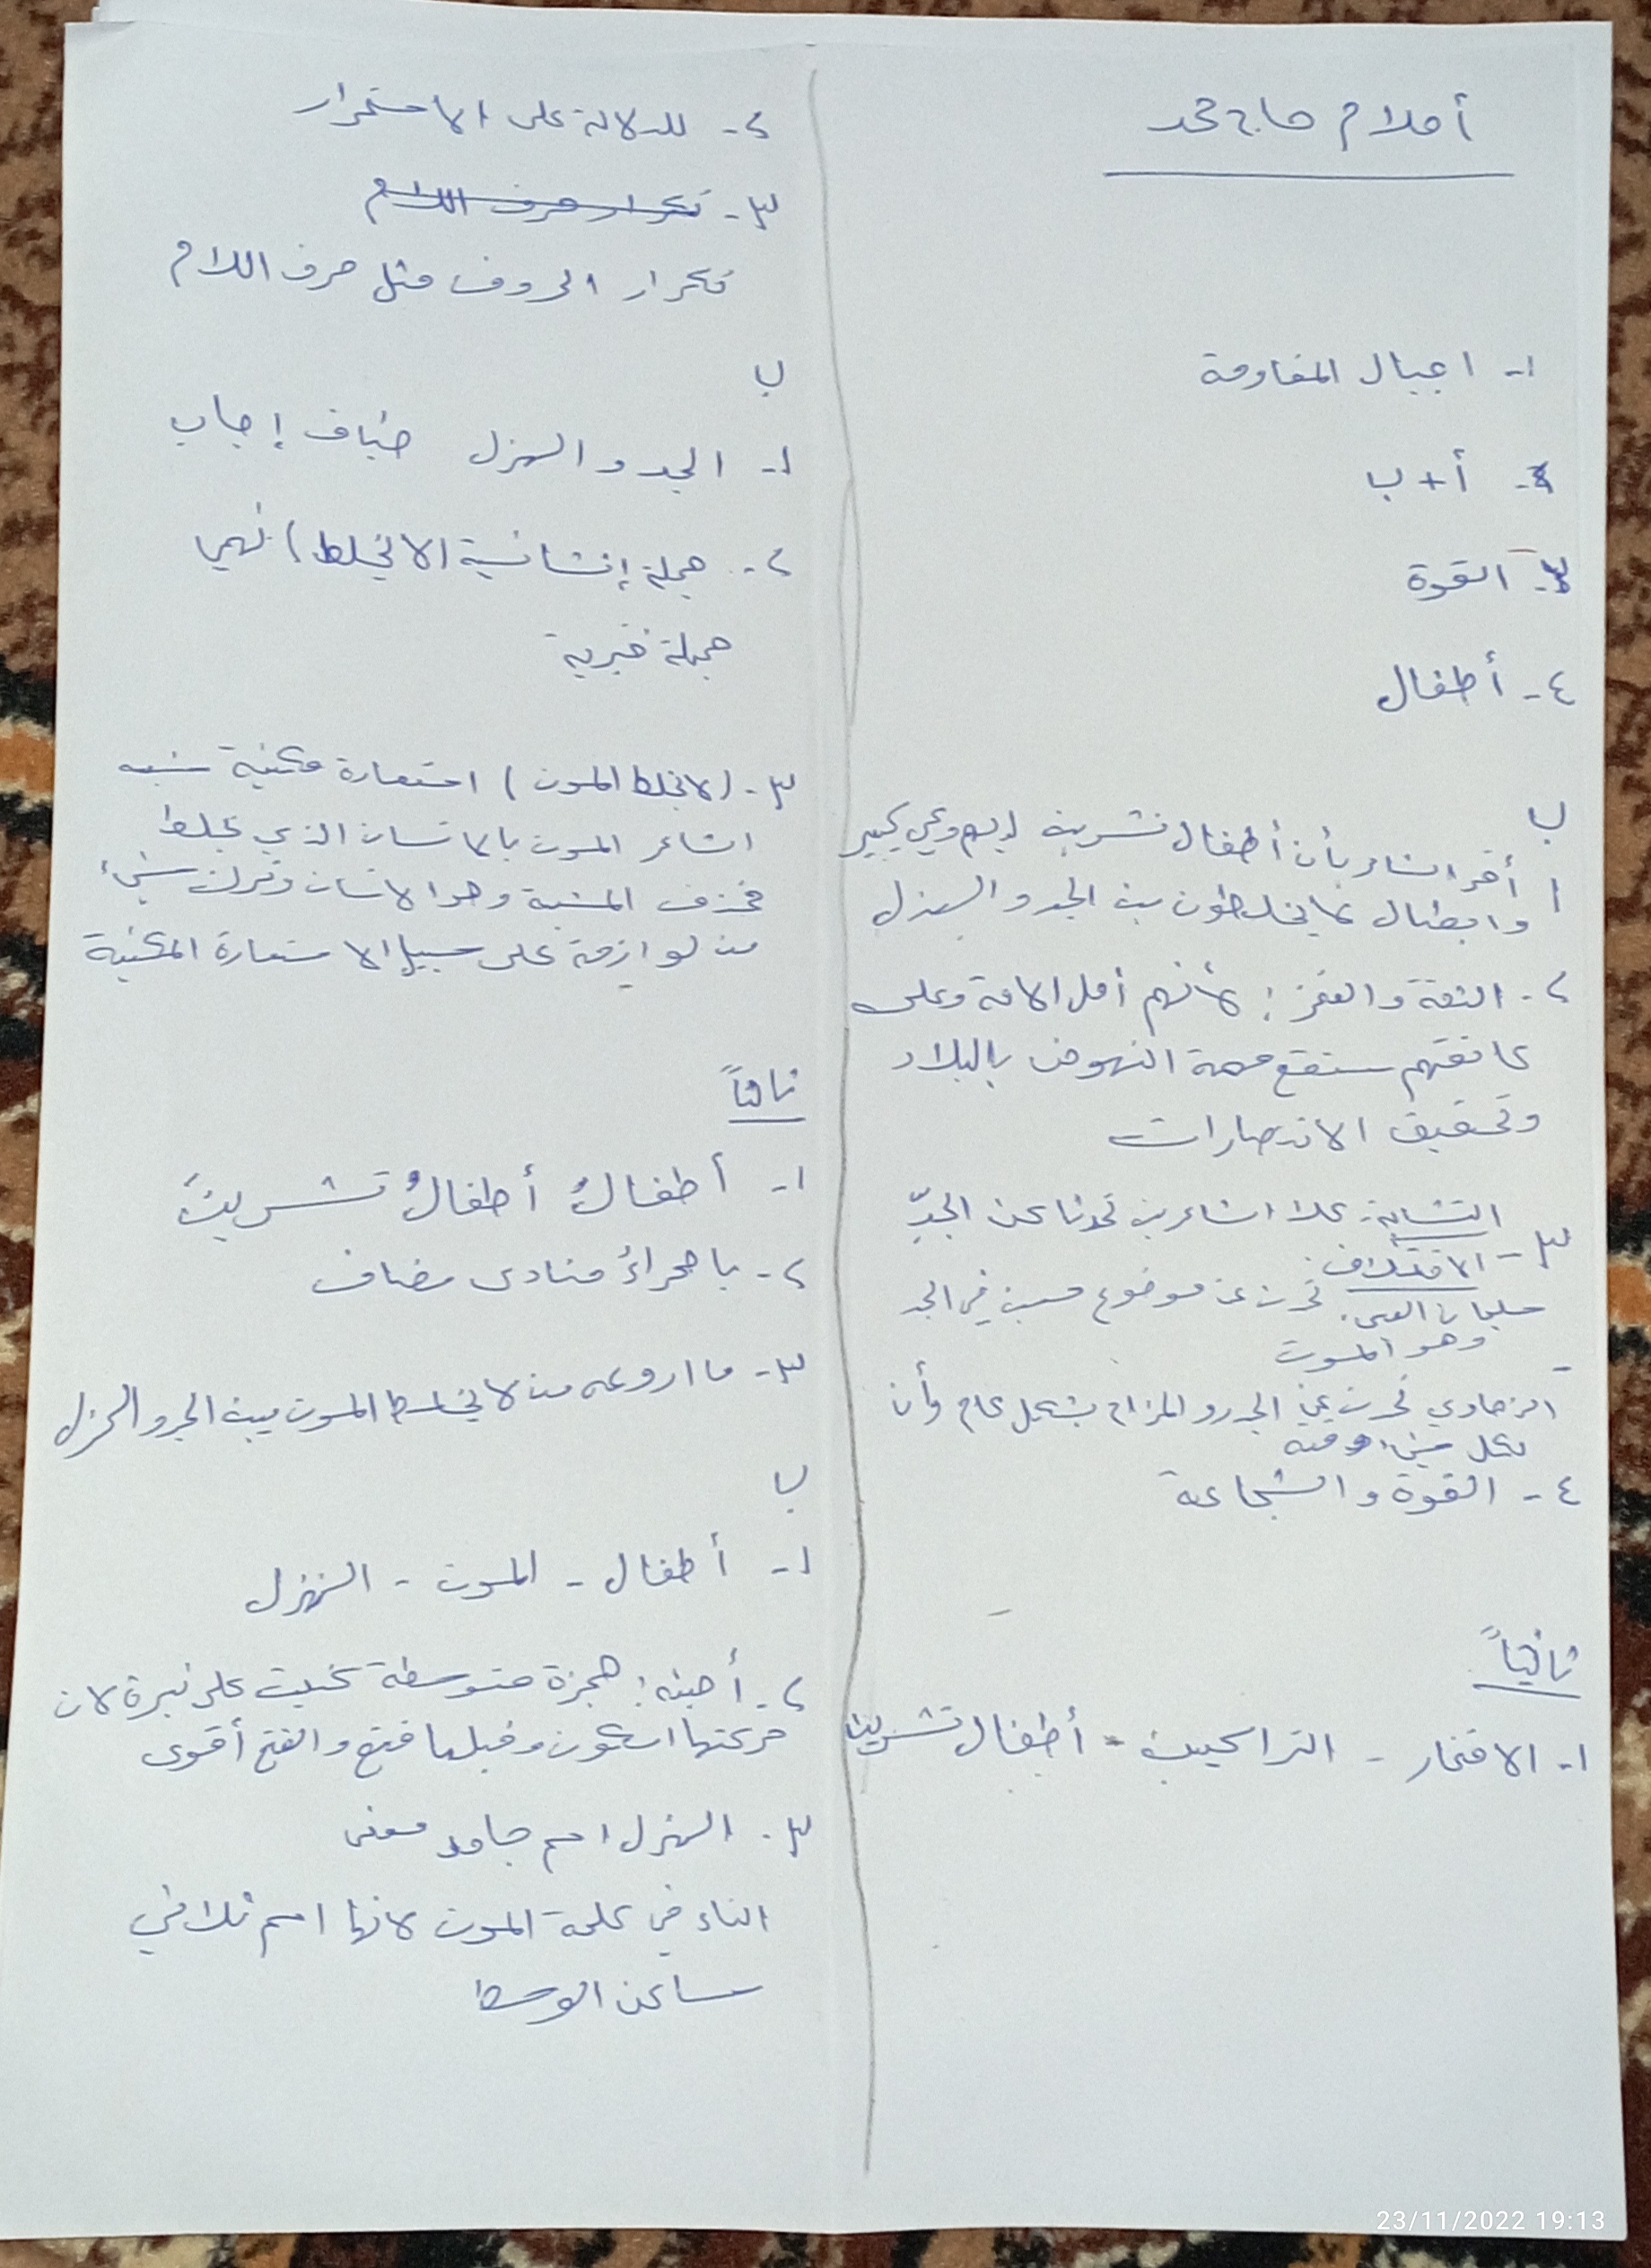 أحلام حاج محمد
١- اجيال المقاومة
٢- أ + ب
٣- القوة
٤- أطفال
ب
١ أقر الشاعر بأن أطفال تشرين لديهم وعي كبير
وابطال لا يخلطون بين الجد والهزل
٢- الثقة والفخر: لأنهم أمل الامة وعلى
عاتقهم ستقع مهمة النهوض بالبلاد
وتحقيق الانتصارات
٣- التشابه: كلا الشاعرين تحدثا عن الجدِّ
الاختلاف:
سليمان العيسى: تحدث عن موضوع معين في الجد
وهو الموت
- الزهاوي تحدث عن الجد والمزاح بشكل عام وأن
لكل شيء وقته
٤- القوة والشجاعة
ثانياً
١- الافتخار - التراكيب - أطفال تشرين
٢- للدلالة على الاستمرار
٣- تكرار حرف اللام
تكرار الحروف مثل حرف اللام
ب
١- الجد والهزل طباق إجاب
٢- جملة إنشائية (لا تخلط) نهي
جملة خبرية
٣- (لا تخلط الموت) استعارة مكنية شبه
الشاعر الموت بالانسان الذي يخلط
فحذف المشبة وهو الانسان وترك شيء
من لوازمة على سبيل الاستعارة المكنية
ثالثاً
١- أطفالُ أطفالُ تشرينَ
٢- يا صحراءُ منادى مضاف
٣- ما اروعه من لا يخلط الموت بين الجد والهزل
ب
١- أطفال - الموت - الهزل
٢- أجئه: همزة متوسطة كتبت على نبرة لان
حركتها السكون وقبلها فتح والفتح أقوى
٣- الهزل اسم جامد معنى
التاء في كلمة الموت لانها اسم ثلاثي
ساكن الوسط
23/11/2022 19:13